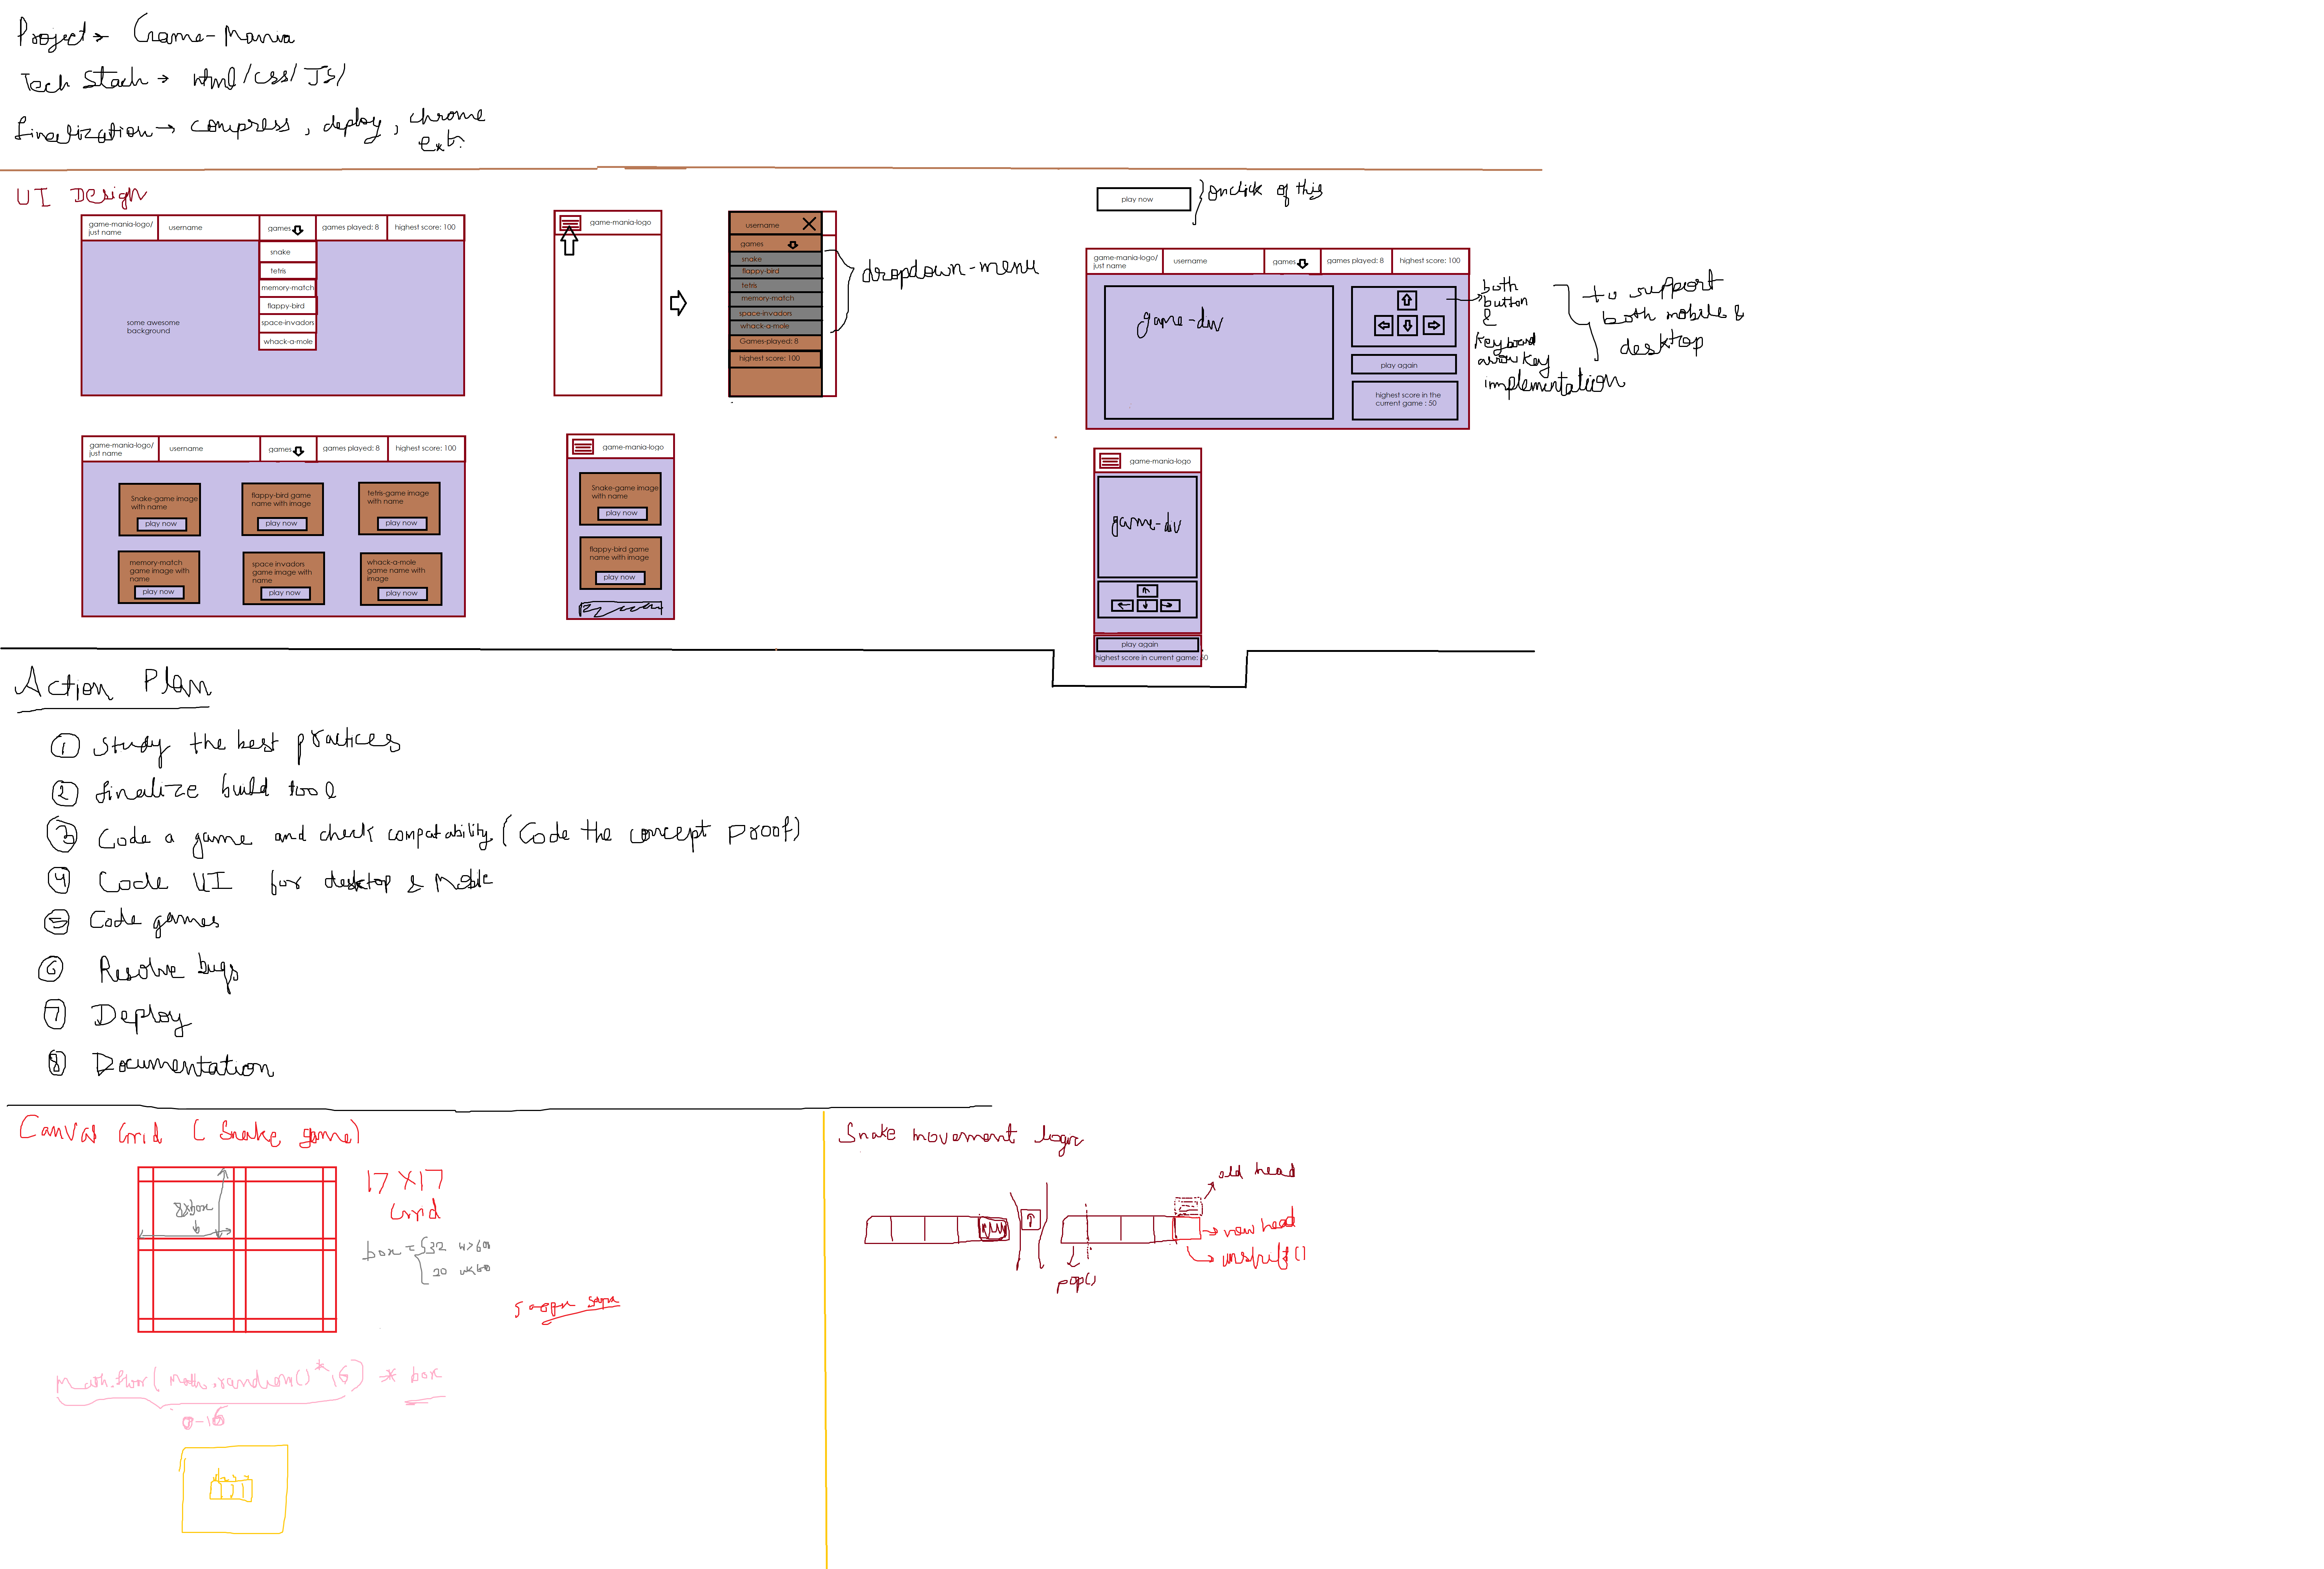 Project → Game-Mania
Tech Stack → Html/CSS/JS/
finalization → compress, deploy, chrome
ext.
UI Design
game-mania-logo/
just name
username
games
games played: 8
highest score: 100
snake
tetris
memory-match
flappy-bird
space-invadors
whack-a-mole
some awesome
background
game-mania-logo
username
games
snake
flappy-bird
tetris
memory-match
space-invadors
whack-a-mole
Games-played: 8
highest score: 100
dropdown-menu
play now
onclick of this
game-mania-logo/
just name
username
games
games played: 8
highest score: 100
game-div
play again
highest score in the
current game : 50
both
button
&
keyboard
arrow key
implementation
to support
both mobile &
desktop
game-mania-logo/
just name
username
games
games played: 8
highest score: 100
Snake-game image
with name
play now
flappy-bird game
name with image
play now
tetris-game image
with name
play now
memory-match
game image with
name
play now
space invadors
game image with
name
play now
whack-a-mole
game name with
image
play now
game-mania-logo
Snake-game image
with name
play now
flappy-bird game
name with image
play now
game-mania-logo
game-div
play again
highest score in current game: 50
Action Plan
1 Study the best practices
2 finalize build tool
3 Code a game and check compatability (Code the concept proof)
4 Code UI for desktop & Mobile
5 Code games
6 Resolve bugs
7 Deploy
8 Documentation
Canvas Grid (Snake game)
8xbox
17 X 17
Grid
box = { 32 w>600
20 w<600
Math.floor(Math.random()*16) * box
0-16
Snake movement logic
old head
new head
unshift()
pop()